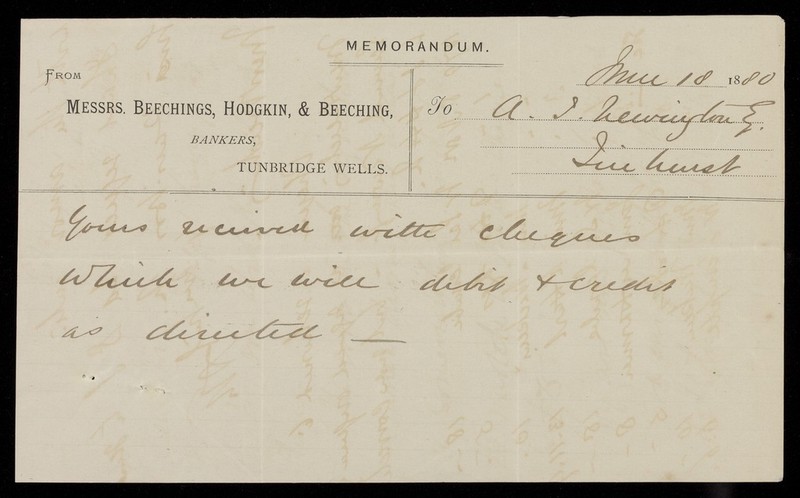 MEMORANDUM.
June 18 1880
FROM
MESSRS. BEECHINGS, HODGKIN, & BEECHING,
BANKERS,
TUNBRIDGE WELLS.
To A. S. Newington Esq.
Ticehurst
Yours received with cheques
which we will debit & credit
as directed —